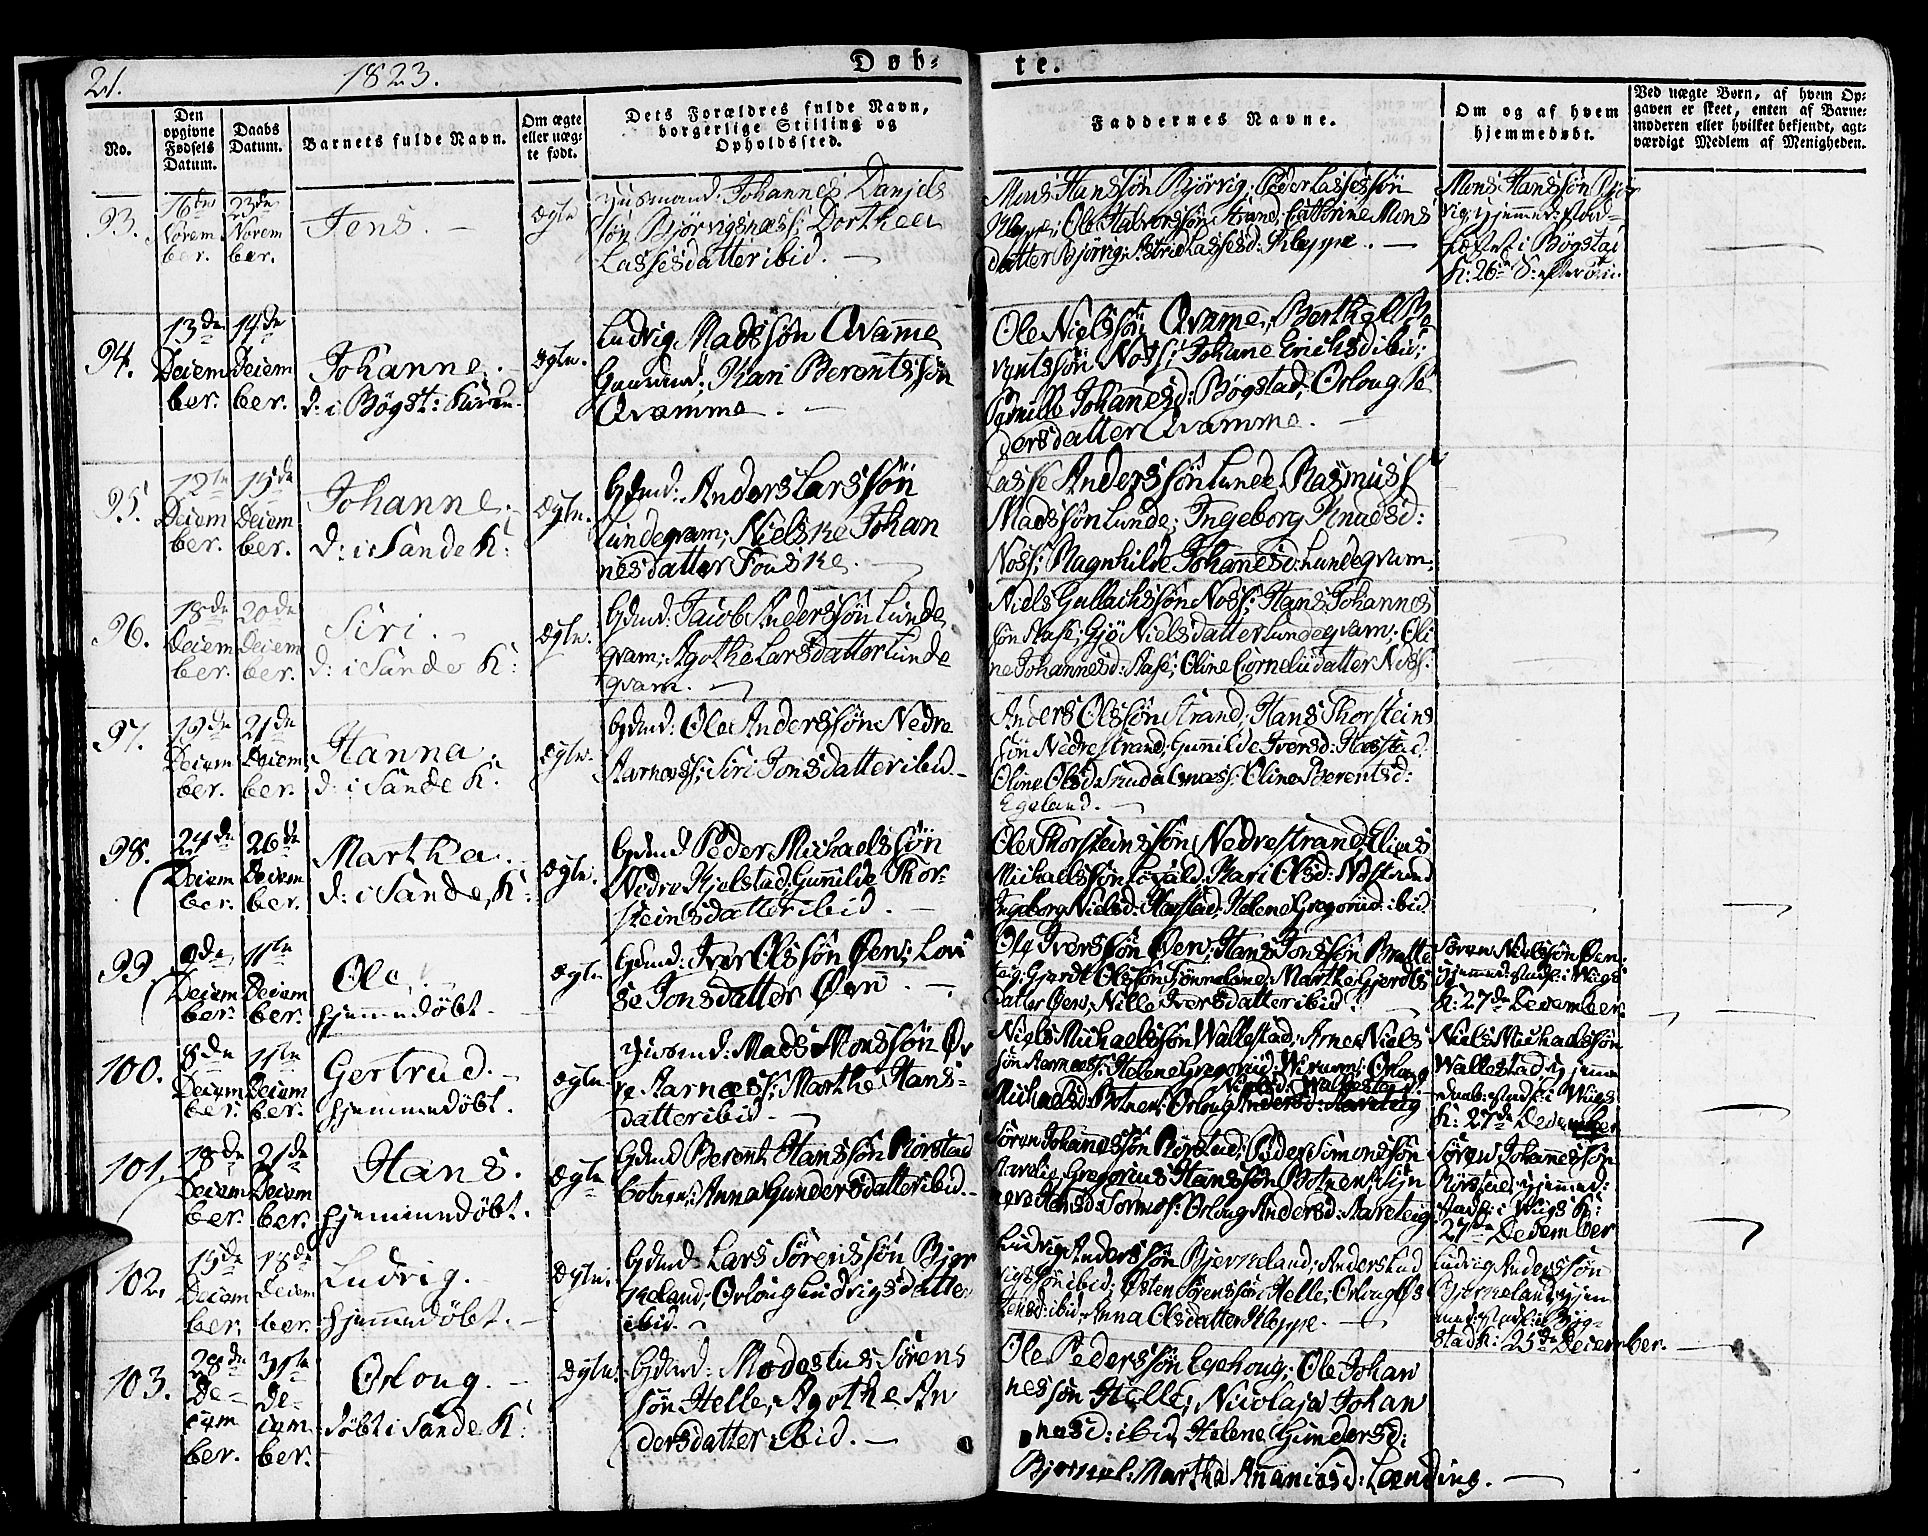 21.
1823.
Døb-
te.
No.
Den opgivne Fødsels Datum.
Daabs Datum.
Barnets fulde Navn.
Om ægte eller uægte født.
Dets Forældres fulde Navn, borgerlige Stilling og Opholdssted.
Faddernes Navne.
Om og af hvem hjemmedøbt.
Ved uægte Børn, af hvem Opgaven er skeet, enten af Barnemoderen eller hvilket bekjendt, agtværdigt Medlem af Menigheden.
93.
16ten November.
23de November.
Jens.
Ægte
Huusmand: Johannes Daniels
søn Björvigsness; Dorthea
Lassesdatter ibid.
Mons Hanssøn Björvig; Peder Lassessøn
Kleppe; Ole Halvorssøn Strand; Cathrine Mons
datter Björvig; Lassesd: Kleppe.
Mons Hanssøn
i Bögstad
K: 26de
94.
13de December.
14de December.
Johanne.
d: i Bögst: Kirke.
Ægte.
Ludvig Madssøn Qvamme
Gaardmd: Kari Berentssøn
Qvamme.
Ole Nielssön Qvamme; Berthel Be
rentssön Noss; Johanne Erichsd ibid;
Pernille Johanesd: Bögstad; Orloug Pe
dersdatter Qvamme.
95.
12te December.
15de December.
Johanne.
d: i Sande K:
Ægte.
Gdmd: Anders Larssøn
Lundeqvam; Nielske Johan
nesdatter Fonske.
Lasse Anderssøn Lunde, Rasmus
Madssøn Lunde; Ingeborg Knudsd:
Noss; Magnhilde Johannesd: Lundeqvam.
96.
18de December.
20de December.
Siri.
d: i Sande K:
Ægte.
Gdmd: Jacob Anderssøn Lunde
qvam; Agothe Larsdatter Lunde
qvam.
Niels Gullachssøn Noss; Hans Johannes
søn Aase; Gjø Nielsdatter Lundeqvam; Oli
ne Johannesd: Aase; Oline Corneliidatter Noss.
97.
19de December.
21de December.
Hanna.
d: i Sande K:
Ægte.
Gdmd: Ole Anderssøn Nedre
Aarness; Siri Jonsdatter ibid.
Anders Olssøn Strand; Hans Thorsteins
søn Nedrestrand; Gunnilde Iversd: Hæstad.
Oline Olsd: Oline Berentsd:
Egeland.
98.
24de December.
26de December.
Martha.
d: i Sande K:
Ægte.
Gdmd Peder Michaelssøn
Nedre Kjelstad; Gunnilde Thor-
steinsdatter ibid.
Ole Thorsteinssøn Nedrestrand; Elias
Michaelssøn Kari Olsd: N.strand
Ingeborg Nielsd: Hæstad; Helene Gregoriid: ibid
99.
9de December.
11te December.
Ole.
hjemmedöbt.
Ægte
Gdmd: Iver Olssøn Øen; Lovi
se Jonsdatter Øen.
Ole Iverssøn Øen; Hans Jonssøn Bratte
teig; Gjerdt Olssøn Marthe Gjerdts
datter Øen; Nille Iversdatter ibid.
Søren Nielssøn Øen:
hjemme: stadf: i Wiigs
K: 27de December.
100.
8de December.
11te December.
Gertrud.
hjemmedöbt.
Ægte
Huusmd: Mads Monssøn Øv
re Aarness; Marthe Hans-
datter ibid.
Niels Michaelssøn Wallestad; Arne Niels
søn Aarness; Helene Gregoriid: Orloug
Nielsd: Wallestad.
Michaelsd: Botnen; Orloug Andersd: Aareteig
Niels Michaelssøn
Wallestad hjemme
daab: stadf: i Wiigs
K: 27de December
101.
18de December.
21de December.
Hans.
hjemmedöbt.
Ægte
Gdmd Berent Hanssøn Rörstad
botnen; Anna Gundersdatter ibid.
Søren Johannessøn Rörstad; Peder Simonssøn
Gregorius Hanssøn Botnen;
Orloug Andersd: Aareteig
Søren Johannessøn
Rörstad; hjemmed:
stadf: i Wiigs K:
27de December
102.
15de December.
18de December.
Ludvig.
hjemmedöbt.
Ægte.
Gdmd: Lars Sörenssøn Bjer
keland; Orloug Ludvigsdatter
ibid.
Ludvig Anderssøn Bjerkeland; Anders Lud
vigssøn ibid; Østen Sörenssøn Helle; Orloug Øs
tensd: ibid; Anna Olsdatter Kleppe.
Ludvig Anderssøn
Bjerkeland; hjem
med: stadf: i Bög-
stad K: 25de December.
103.
28de December.
31te December.
Orloug.
döbt i Sande K:
Ægte.
Gdmd: Modestus Sörens
søn Helle; Agothe An
dersdatter ibid.
Ole Pederssøn Egehoug; Ole Johan
nessøn Helle; Nicolaja Johan
nesd: ibid; Helene Gundersd:
Martha Ananiasd: Lænding.